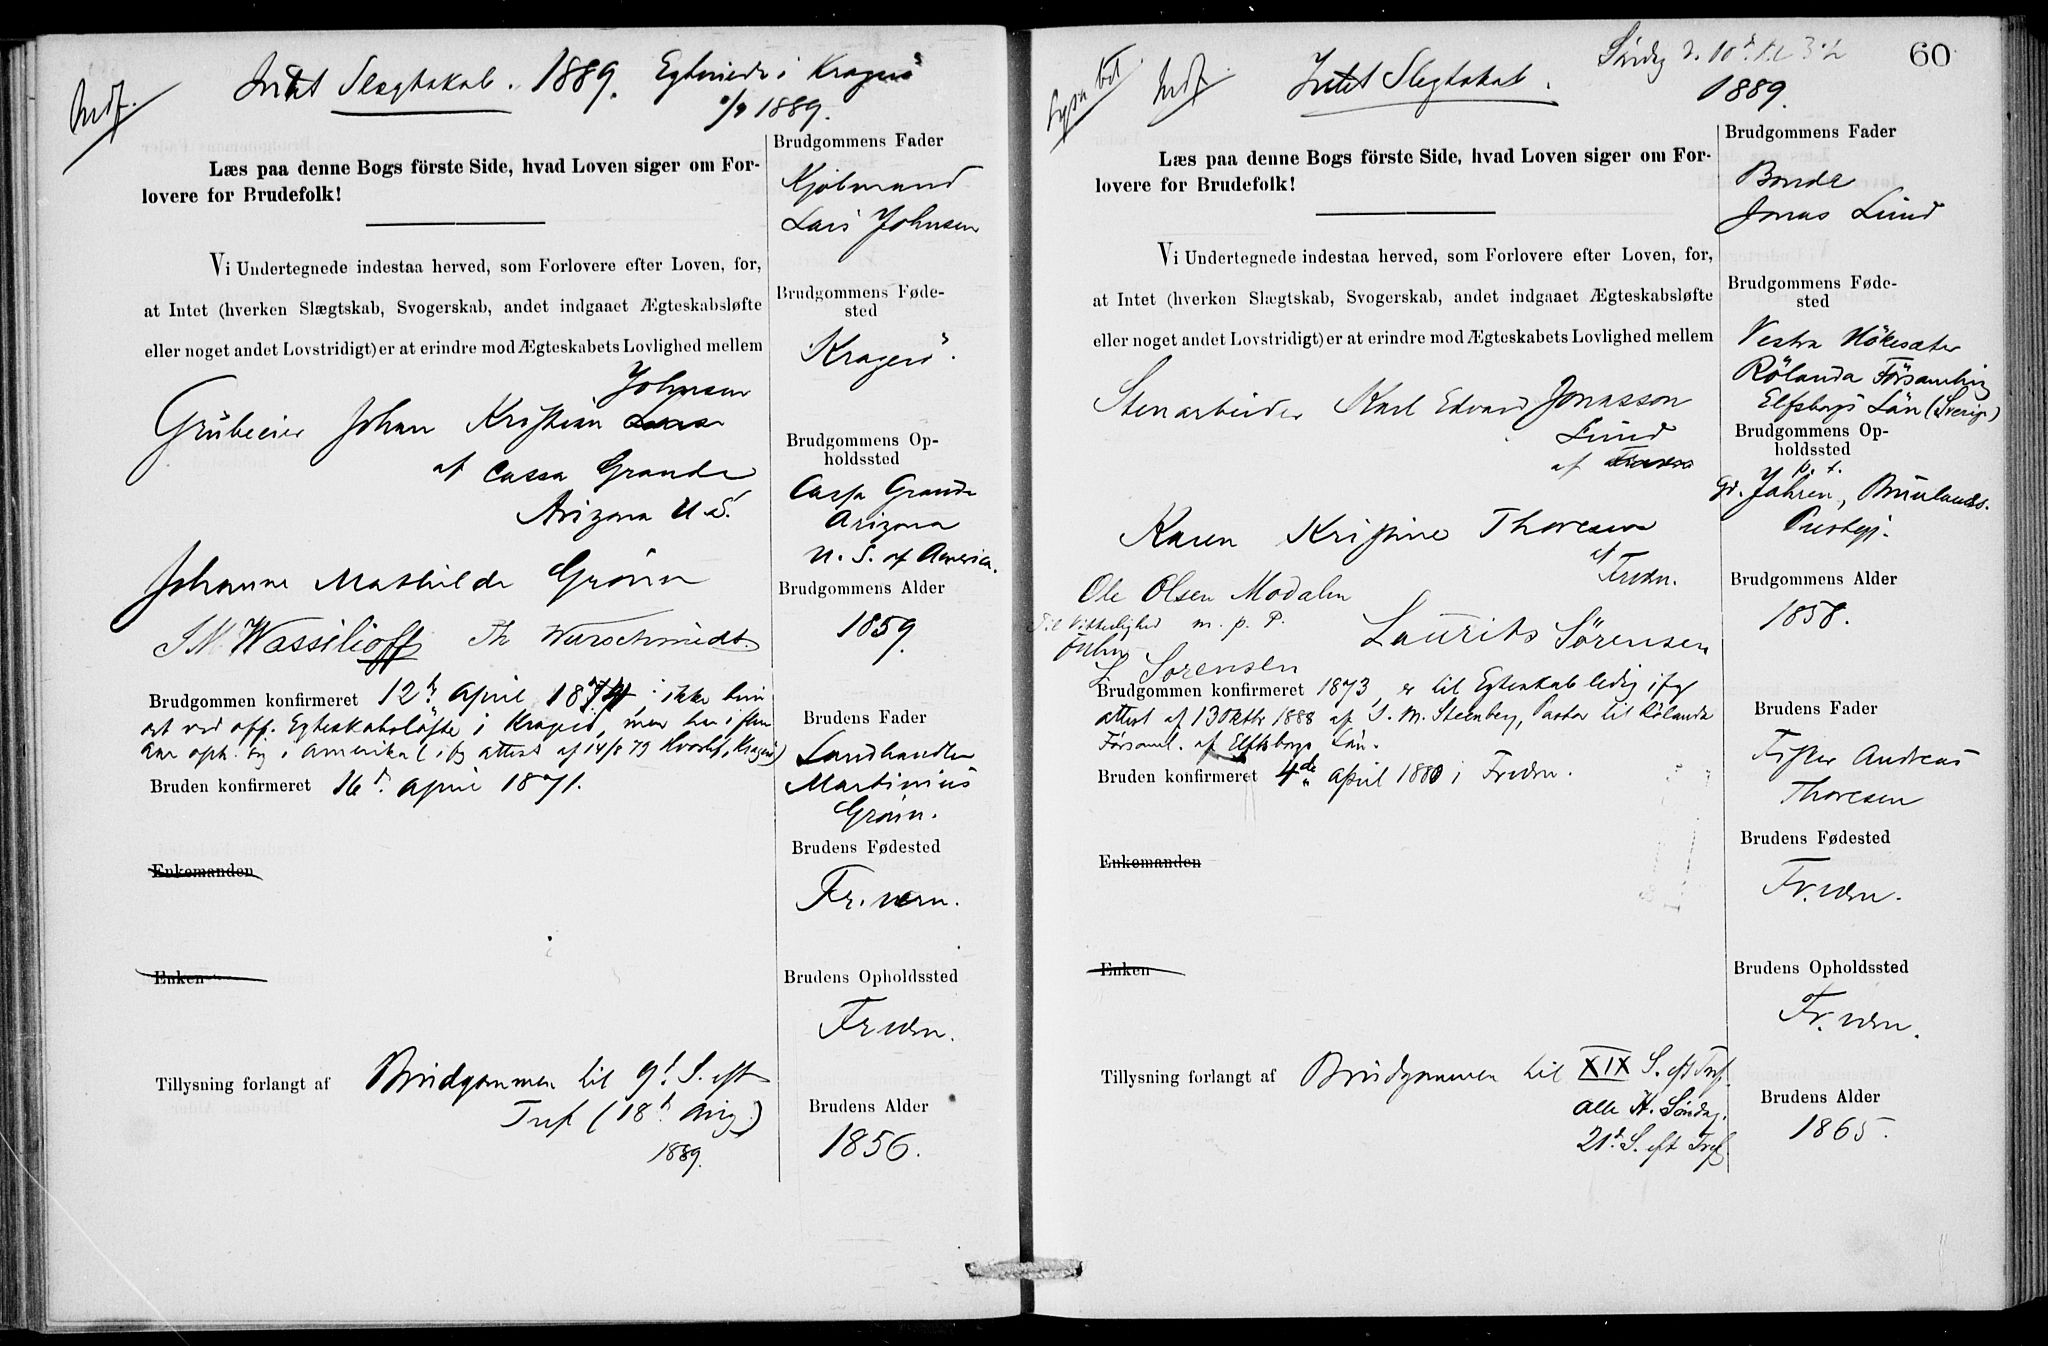 Indf.
Intet Slægtskab. 1889. Egtviede i Kragerø
1889.
Læs paa denne Bogs förste Side, hvad Loven siger om For-
lovere for Brudefolk!
Vi Undertegnede indestaa herved, som Forlovere efter Loven, for,
at Intet (hverken Slægtskab, Svogerskab, andet indgaaet Ægteskabsløfte
eller noget andet Lovstridigt) er at erindre mod Ægteskabets Lovlighed mellem
Johnsen
Grubeeier Johan Kristian
af Cassa Grande
Arizona U.S.
Johanne Mathilde Grönn
S N Wassilioff Th Wurschmidt.
Brudgommen konfirmeret 12te April 1874 ikke bun
det ved off. Egteskabsløfte i Kragerø, men har i flere
aar oph. sig i Amerika (ifg attest af 14/8 79 Kragerø)
Bruden konfirmeret 16de April 1871.
Enkemanden
Enken
Tillysning forlangt af Brudgommen til 9d. S. eft
Tref (18d Aug.)
1889.
Brudgommens Fader
Kjöbmand
Lars Johnsen
Brudgommens Føde-
sted
Kragerö.
Brudgommens Op-
holdssted
Cassa Grande
Arizona
U. S. of America.
Brudgommens Alder
1859.
Brudens Fader
Landhandler
Martinius
Grönn.
Brudens Fødested
Fr.værn.
Brudens Opholdssted
Fr værn.
Brudens Alder
1856.
60
Indf. Intet Slegtskab. Söndag d. 10d kl 3 1/2
1889.
Læs paa denne Bogs förste Side, hvad Loven siger om For-
lovere for Brudefolk!
Vi Undertegnede indestaa herved, som Forlovere efter Loven, for,
at Intet (hverken Slægtskab, Svogerskab, andet indgaaet Ægteskabsløfte
eller noget andet Lovstridigt) er at erindre mod Ægteskabets Lovlighed mellem
Stenarbeider Karl Edvard Jonasson
Lund
af
Karen Kristine Thoresen
af
Frværn.
Ole Olsen Modalen
Til Vitterlighed m. p. P. Laurits Sørensen
L Sørensen
Brudgommen konfirmeret 1873, er til Egteskab ledig ifg
attest af 13 Oktbr 1888 af S. M. Steenberg, Pastor til Rölanda
Församl. af Elfsborgs Län.
Bruden konfirmeret 4de April 1880 i Frværn.
Enkemanden
Enken
Tillysning forlangt af Brudgommen til XIX S. eft Tref.
alle H. Søndag.
21d. S. eft Tref
Brudgommens Fader
Bonde
Jonas Lund
Brudgommens Føde-
sted
Vestra Hökesæter
Rölanda Församling
Elfsborgs Län (Sverige)
Brudgommens Op-
holdssted
p. t.
Gd. Jahren, Brunlanæs
Prestegj.
Brudgommens Alder
1858.
Brudens Fader
Fisker Andreas
Thoresen
Brudens Fødested
Fr.værn.
Brudens Opholdssted
Fr.værn.
Brudens Alder
1865.